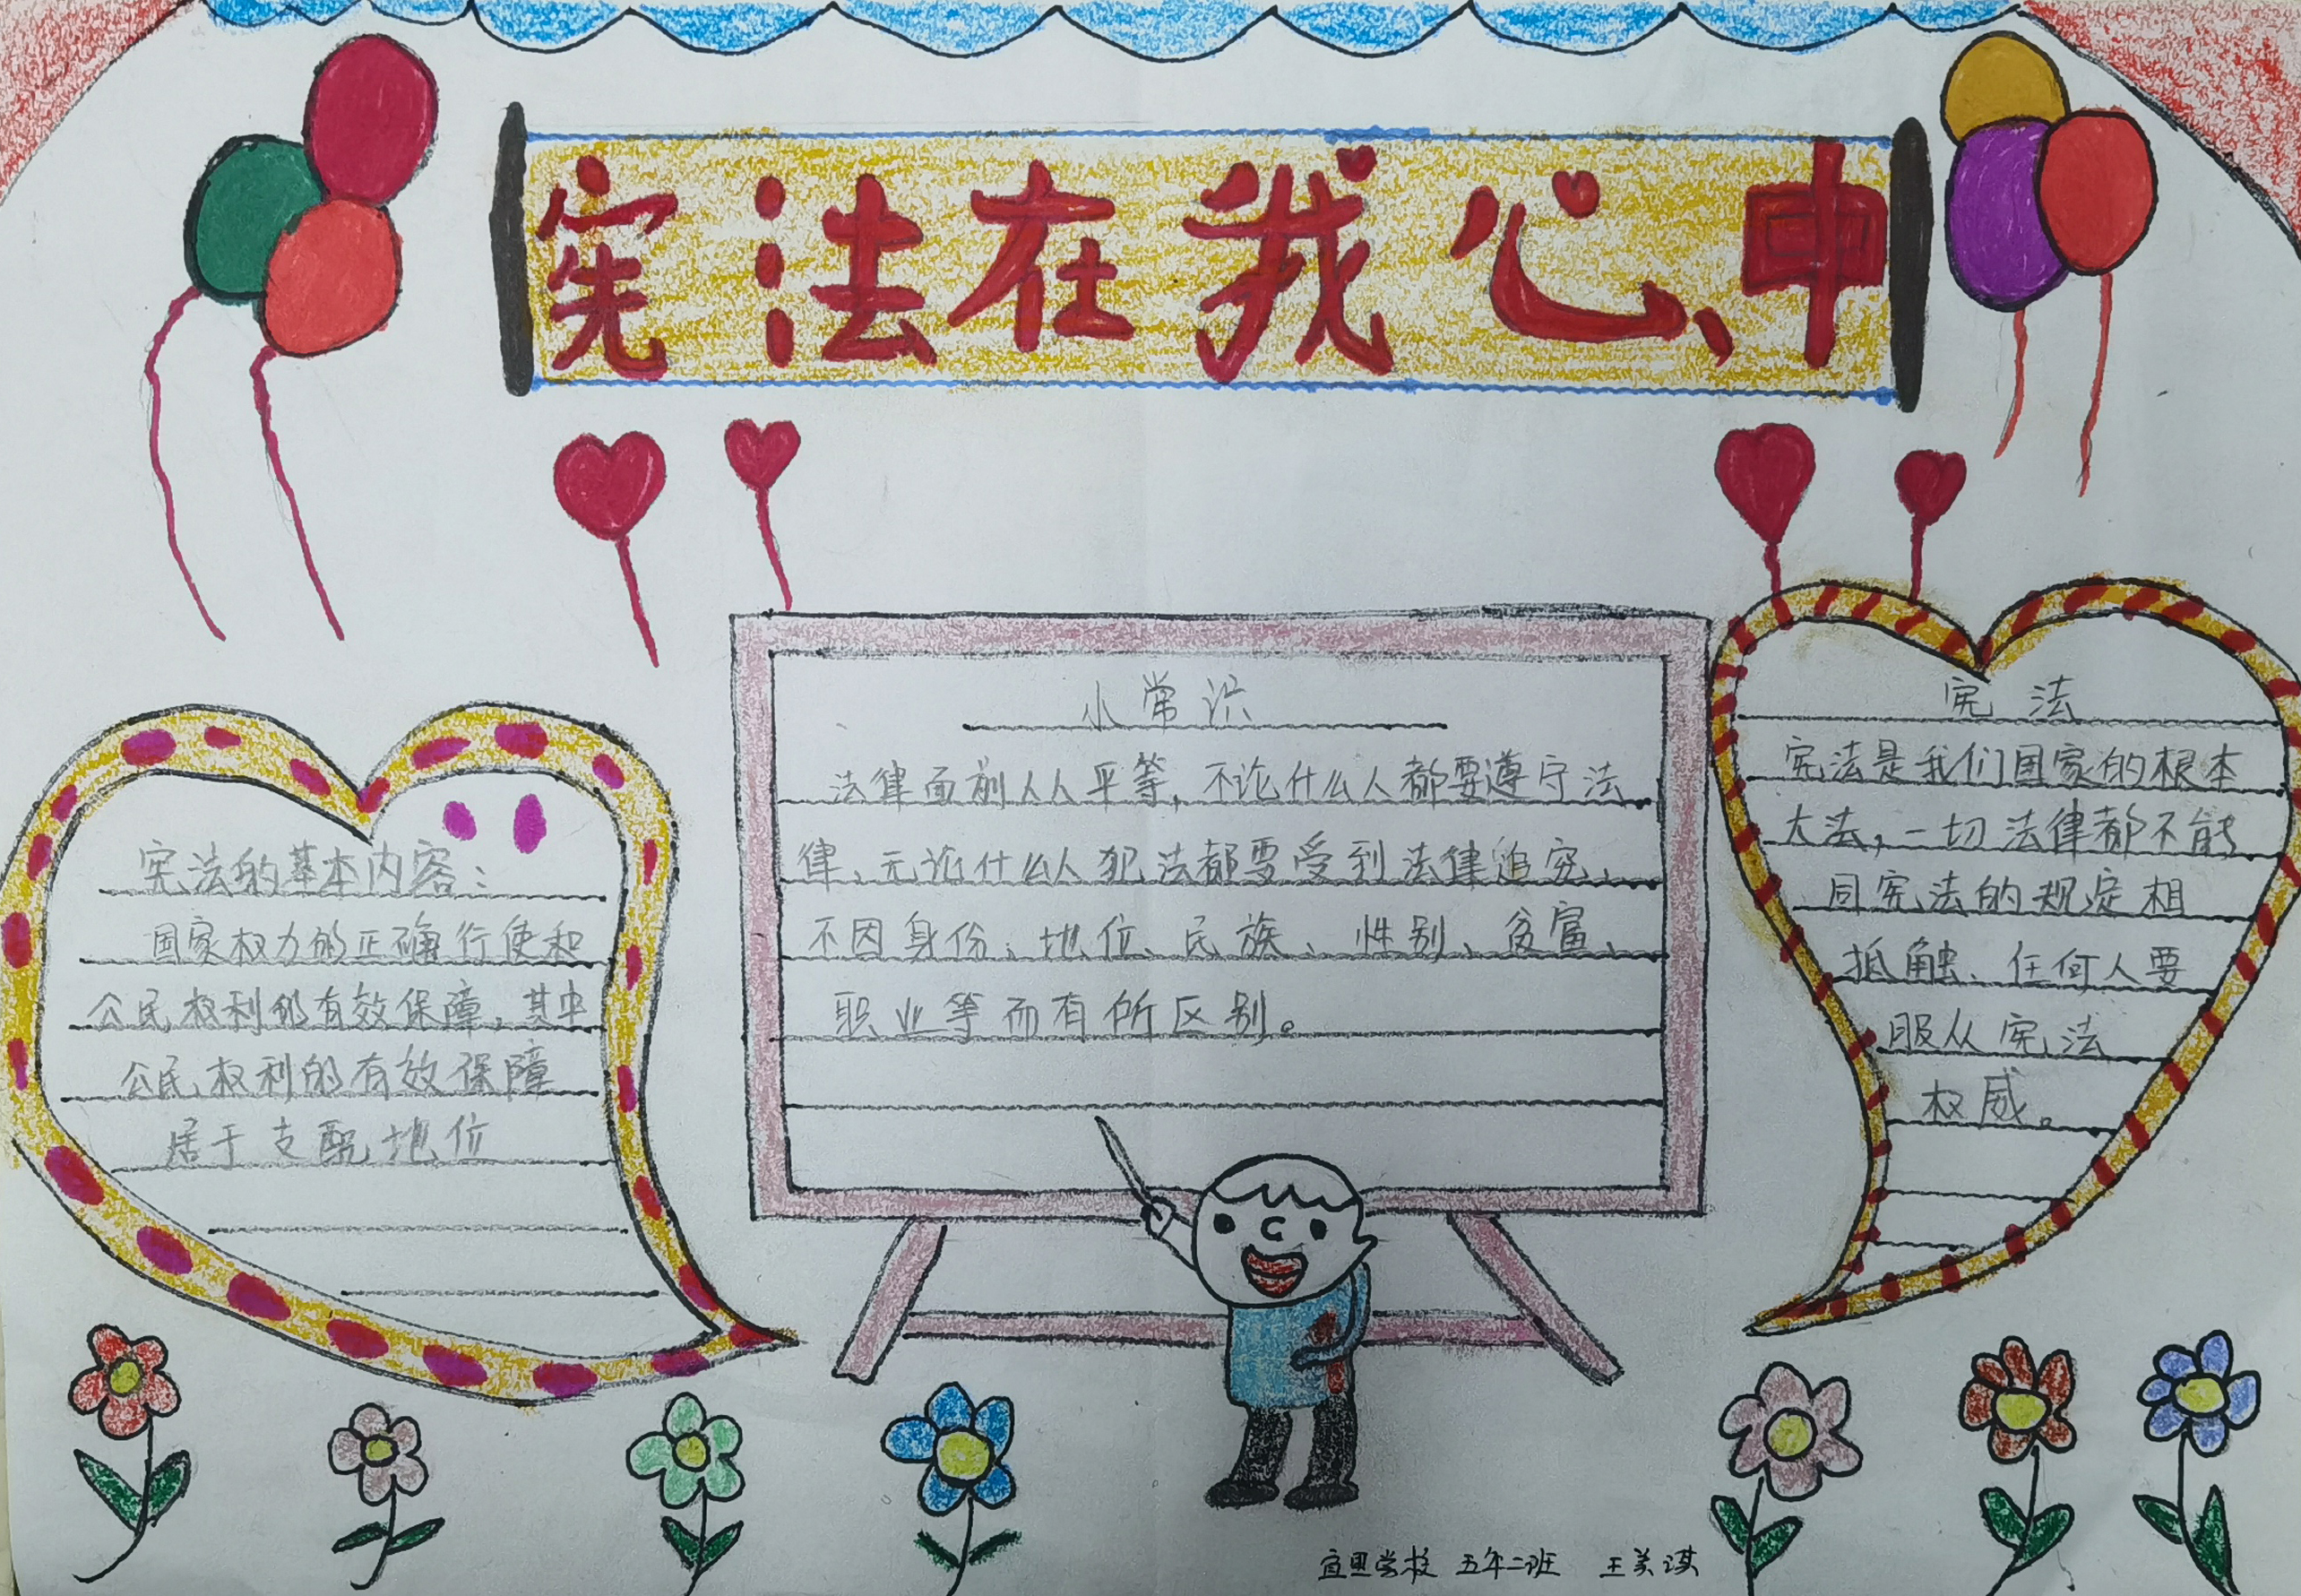 宪法在我心中
宪法的基本内容：
国家权力的正确行使和
公民权利的有效保障，其中
公民权利的有效保障
居于支配地位
小常识
法律面前人人平等，不论什么人都要遵守法
律、无论什么人犯法都要受到法律追究、
不因身份、地位、民族、性别、贫富、
职业等而有所区别。
宪法
宪法是我们国家的根本
大法，一切法律都不能
同宪法的规定相
抵触、任何人要
服从宪法
权威。
学校 五年二班 王美淇